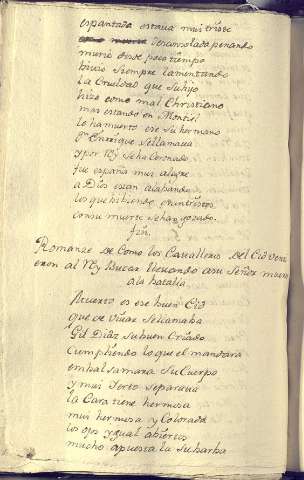 espantada estaua mui triste
desconsolada penando
murio desde poco tiempo
biuio siempre lamentando
la Crueldad que su hijo
hizo como mal Christiano
mas estando en Montiel
lo ha muerto ese su hermano
Dn Enrrique se llamaua
y por Rey se ha Coronado
fue españa mui alegre
a Dios estan alabando
los que bibiendo en tristos
con su muerte se han gozado.
fin.
Romanze de Como los Caualleros del Cid venci
eron al Rey Bucar lleuando a su Señor muerto
a la batalla.
Muerto es ese buen Cid
que de Viuar se llamaba
Gil Diaz su buen Criado
Cumpliendo lo que el mandara
embalsamara su Cuerpo
y mui yerto se paraua
la Cara tiene hermosa
mui hermosa y Colorada
los ojos ygual abiertos
mucho apuesta la su barba